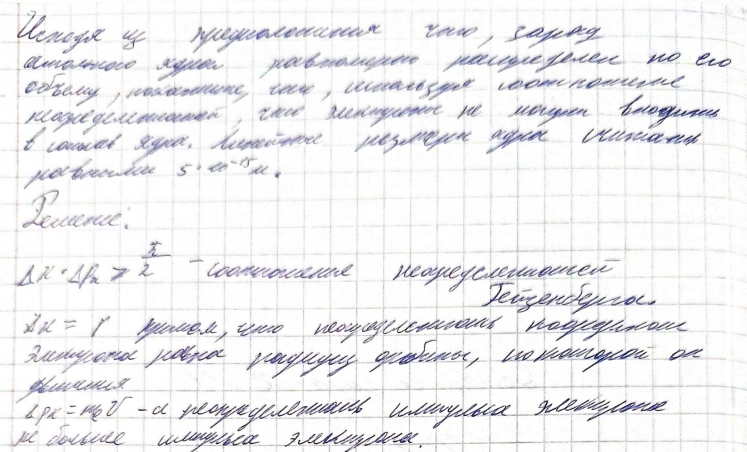 Исходя из предположения что, заряд
атомного ядра равномерно распределен по его
объему, покажите, что, используя соотношение
неопределенностей, что электроны не могут входить
в состав ядра. Линейные размеры ядра считать
равными 5·10⁻¹⁵ м.
Решение:
Δx·Δpₓ ≥ ħ/2 – соотношения неопределенностей
Гейзенберга.
Δx = r примем, что неопределенность координат
электрона равна радиусу орбиты, по которой он
движения
Δpₓ = m₀V – а неопределенность импульса электрона
не больше импульса электрона.